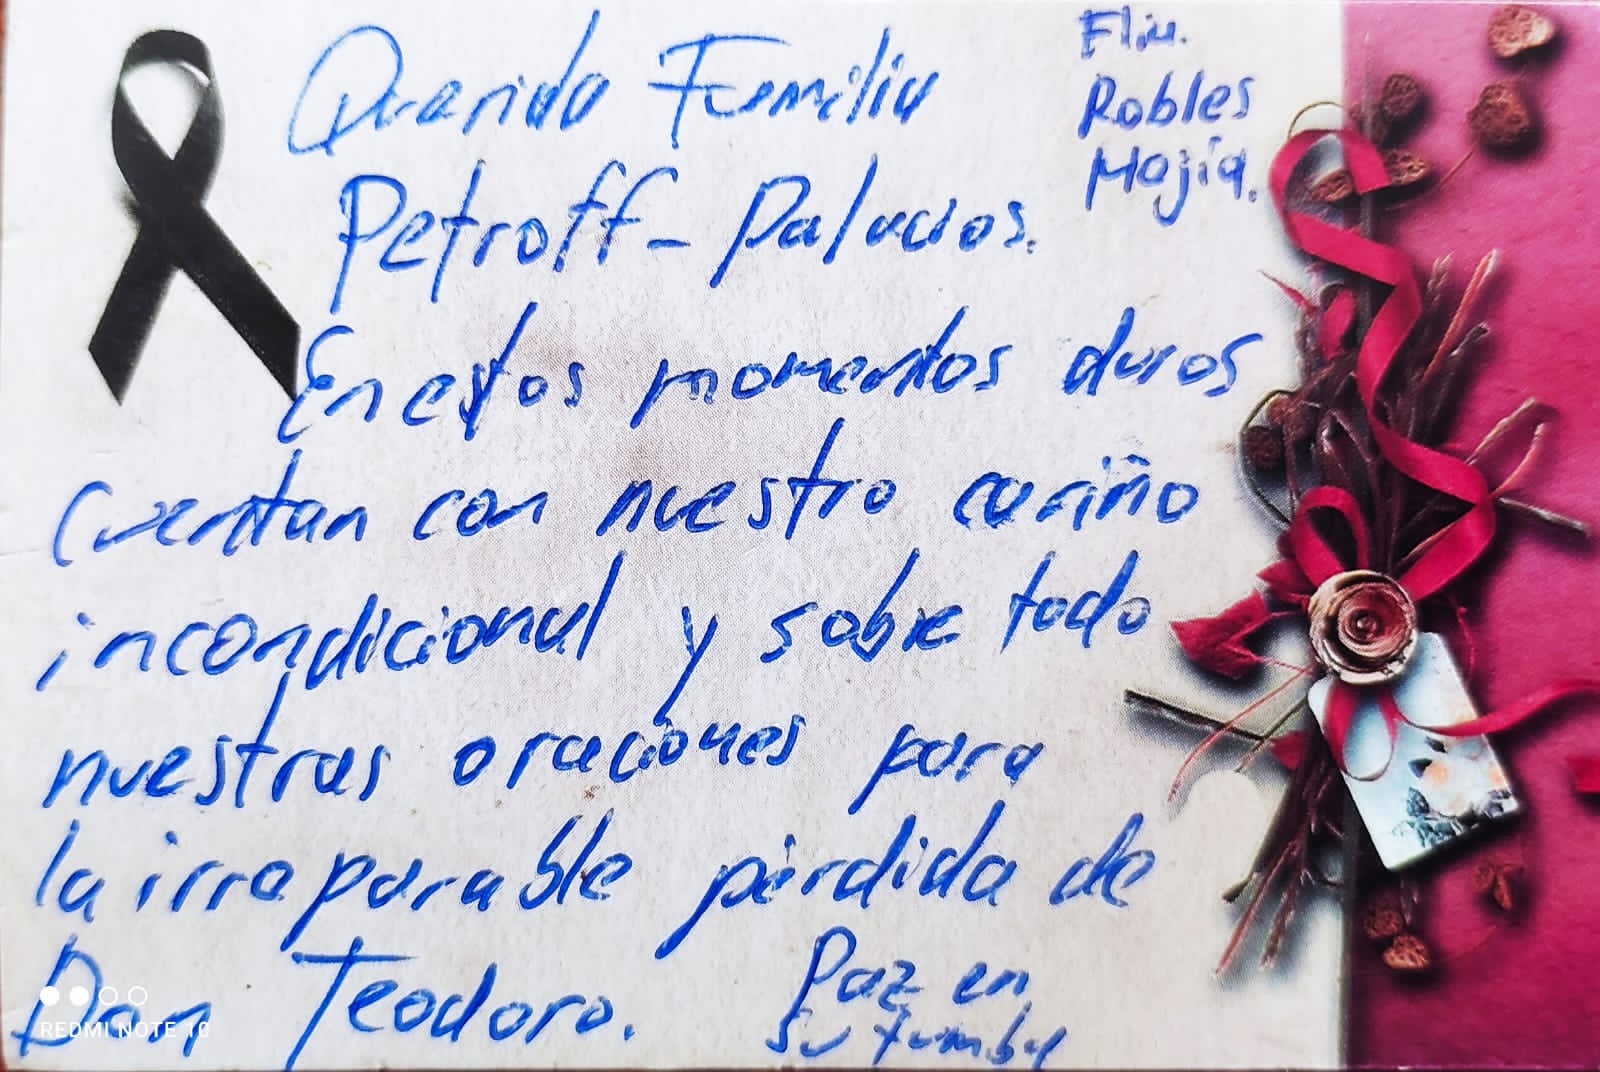 Querida Familia
Petroff - Palacios.
En estos momentos duros
cuentan con nuestro cariño
incondicional y sobre todo
nuestras oraciones para
la irreparable pérdida de
Don Teodoro.
Paz en
su tumba
Flia.
Robles
Mejía.
REDMI NOTE 10